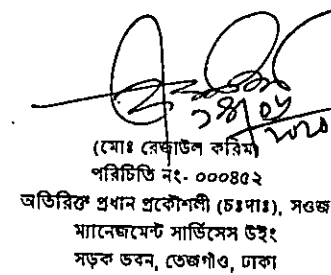 ২৯/০৬
২০২০
(মোঃ রেজাউল করিম)
পরিচিতি নং- ০০০৪৫২
অতিরিক্ত প্রধান প্রকৌশলী (চঃদাঃ), সওজ
ম্যানেজমেন্ট সার্ভিসেস উইং
সড়ক ভবন, তেজগাঁও, ঢাকা